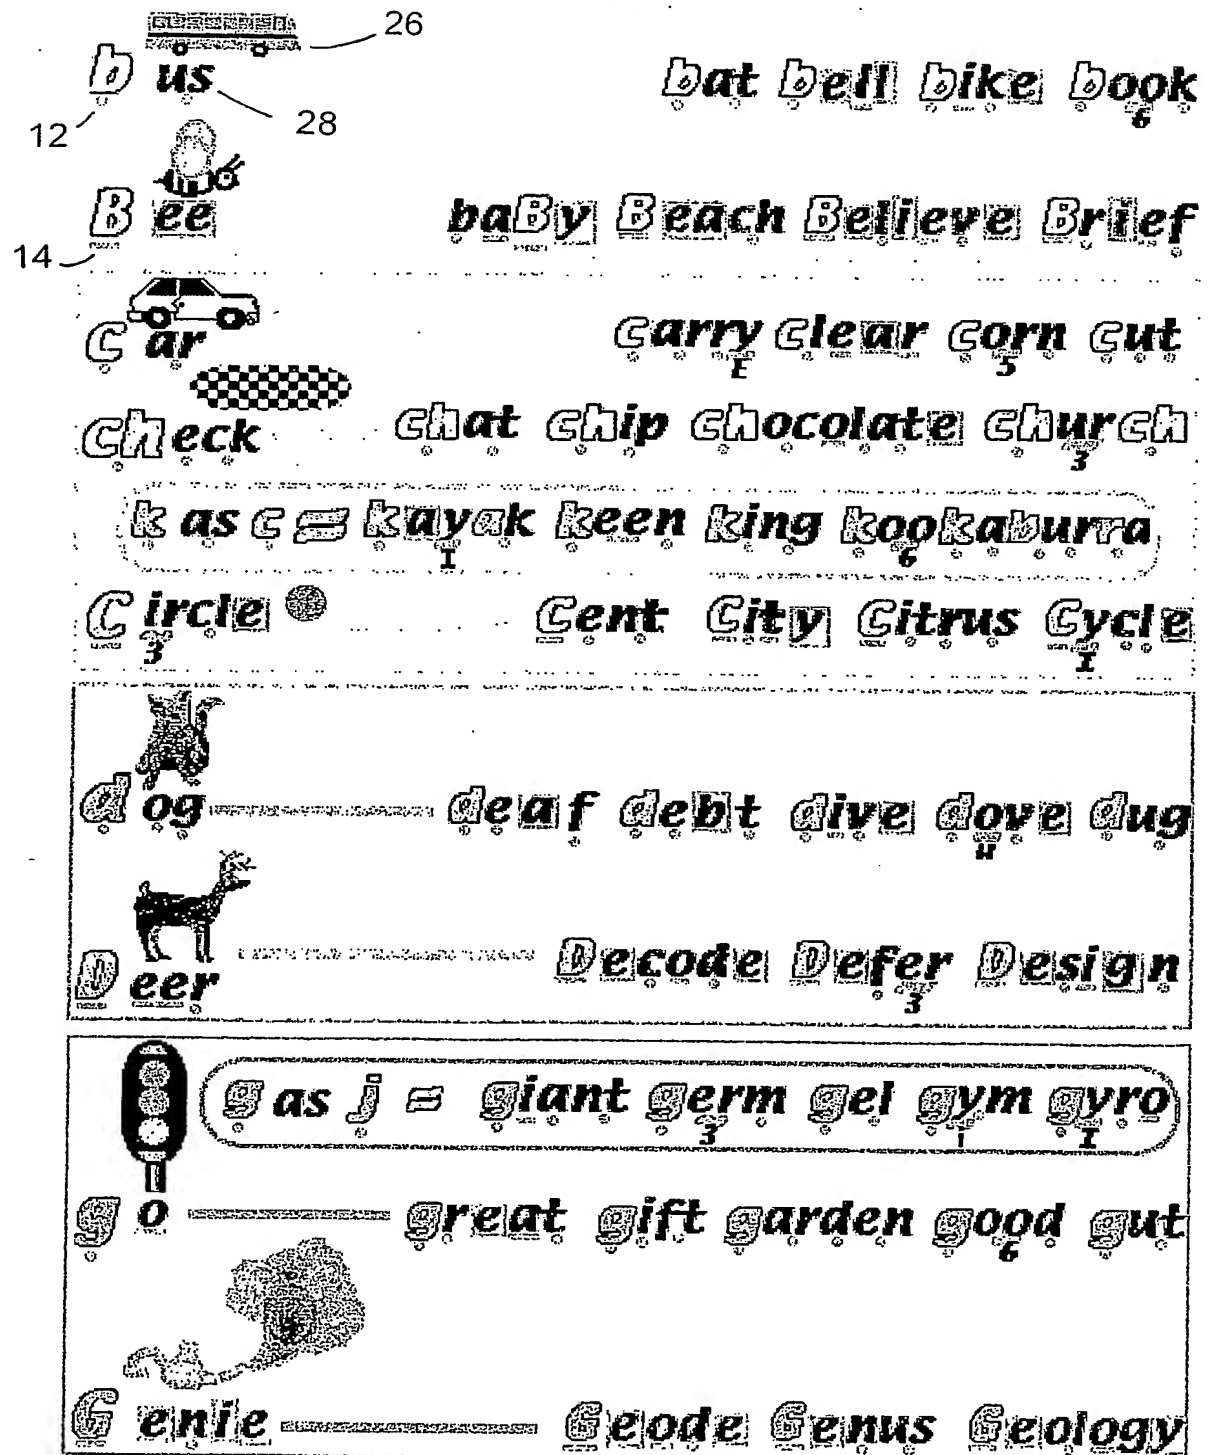 26
b us bat bell bike book
6
12 28
B ee baBy Beach Believe Brief
14
C ar carry clear corn cut
E 5
Check chat chip chocolate church
3
k as c = kayak keen king kookaburra
I 6
Circle Cent City Citrus Cycle
3 I
d og deaf debt dive dove dug
H
D eer Decode Defer Design
3
g as j = giant germ gel gym gyro
3 i I
g o great gift garden good gut
6
G enie Geode Genus Geology